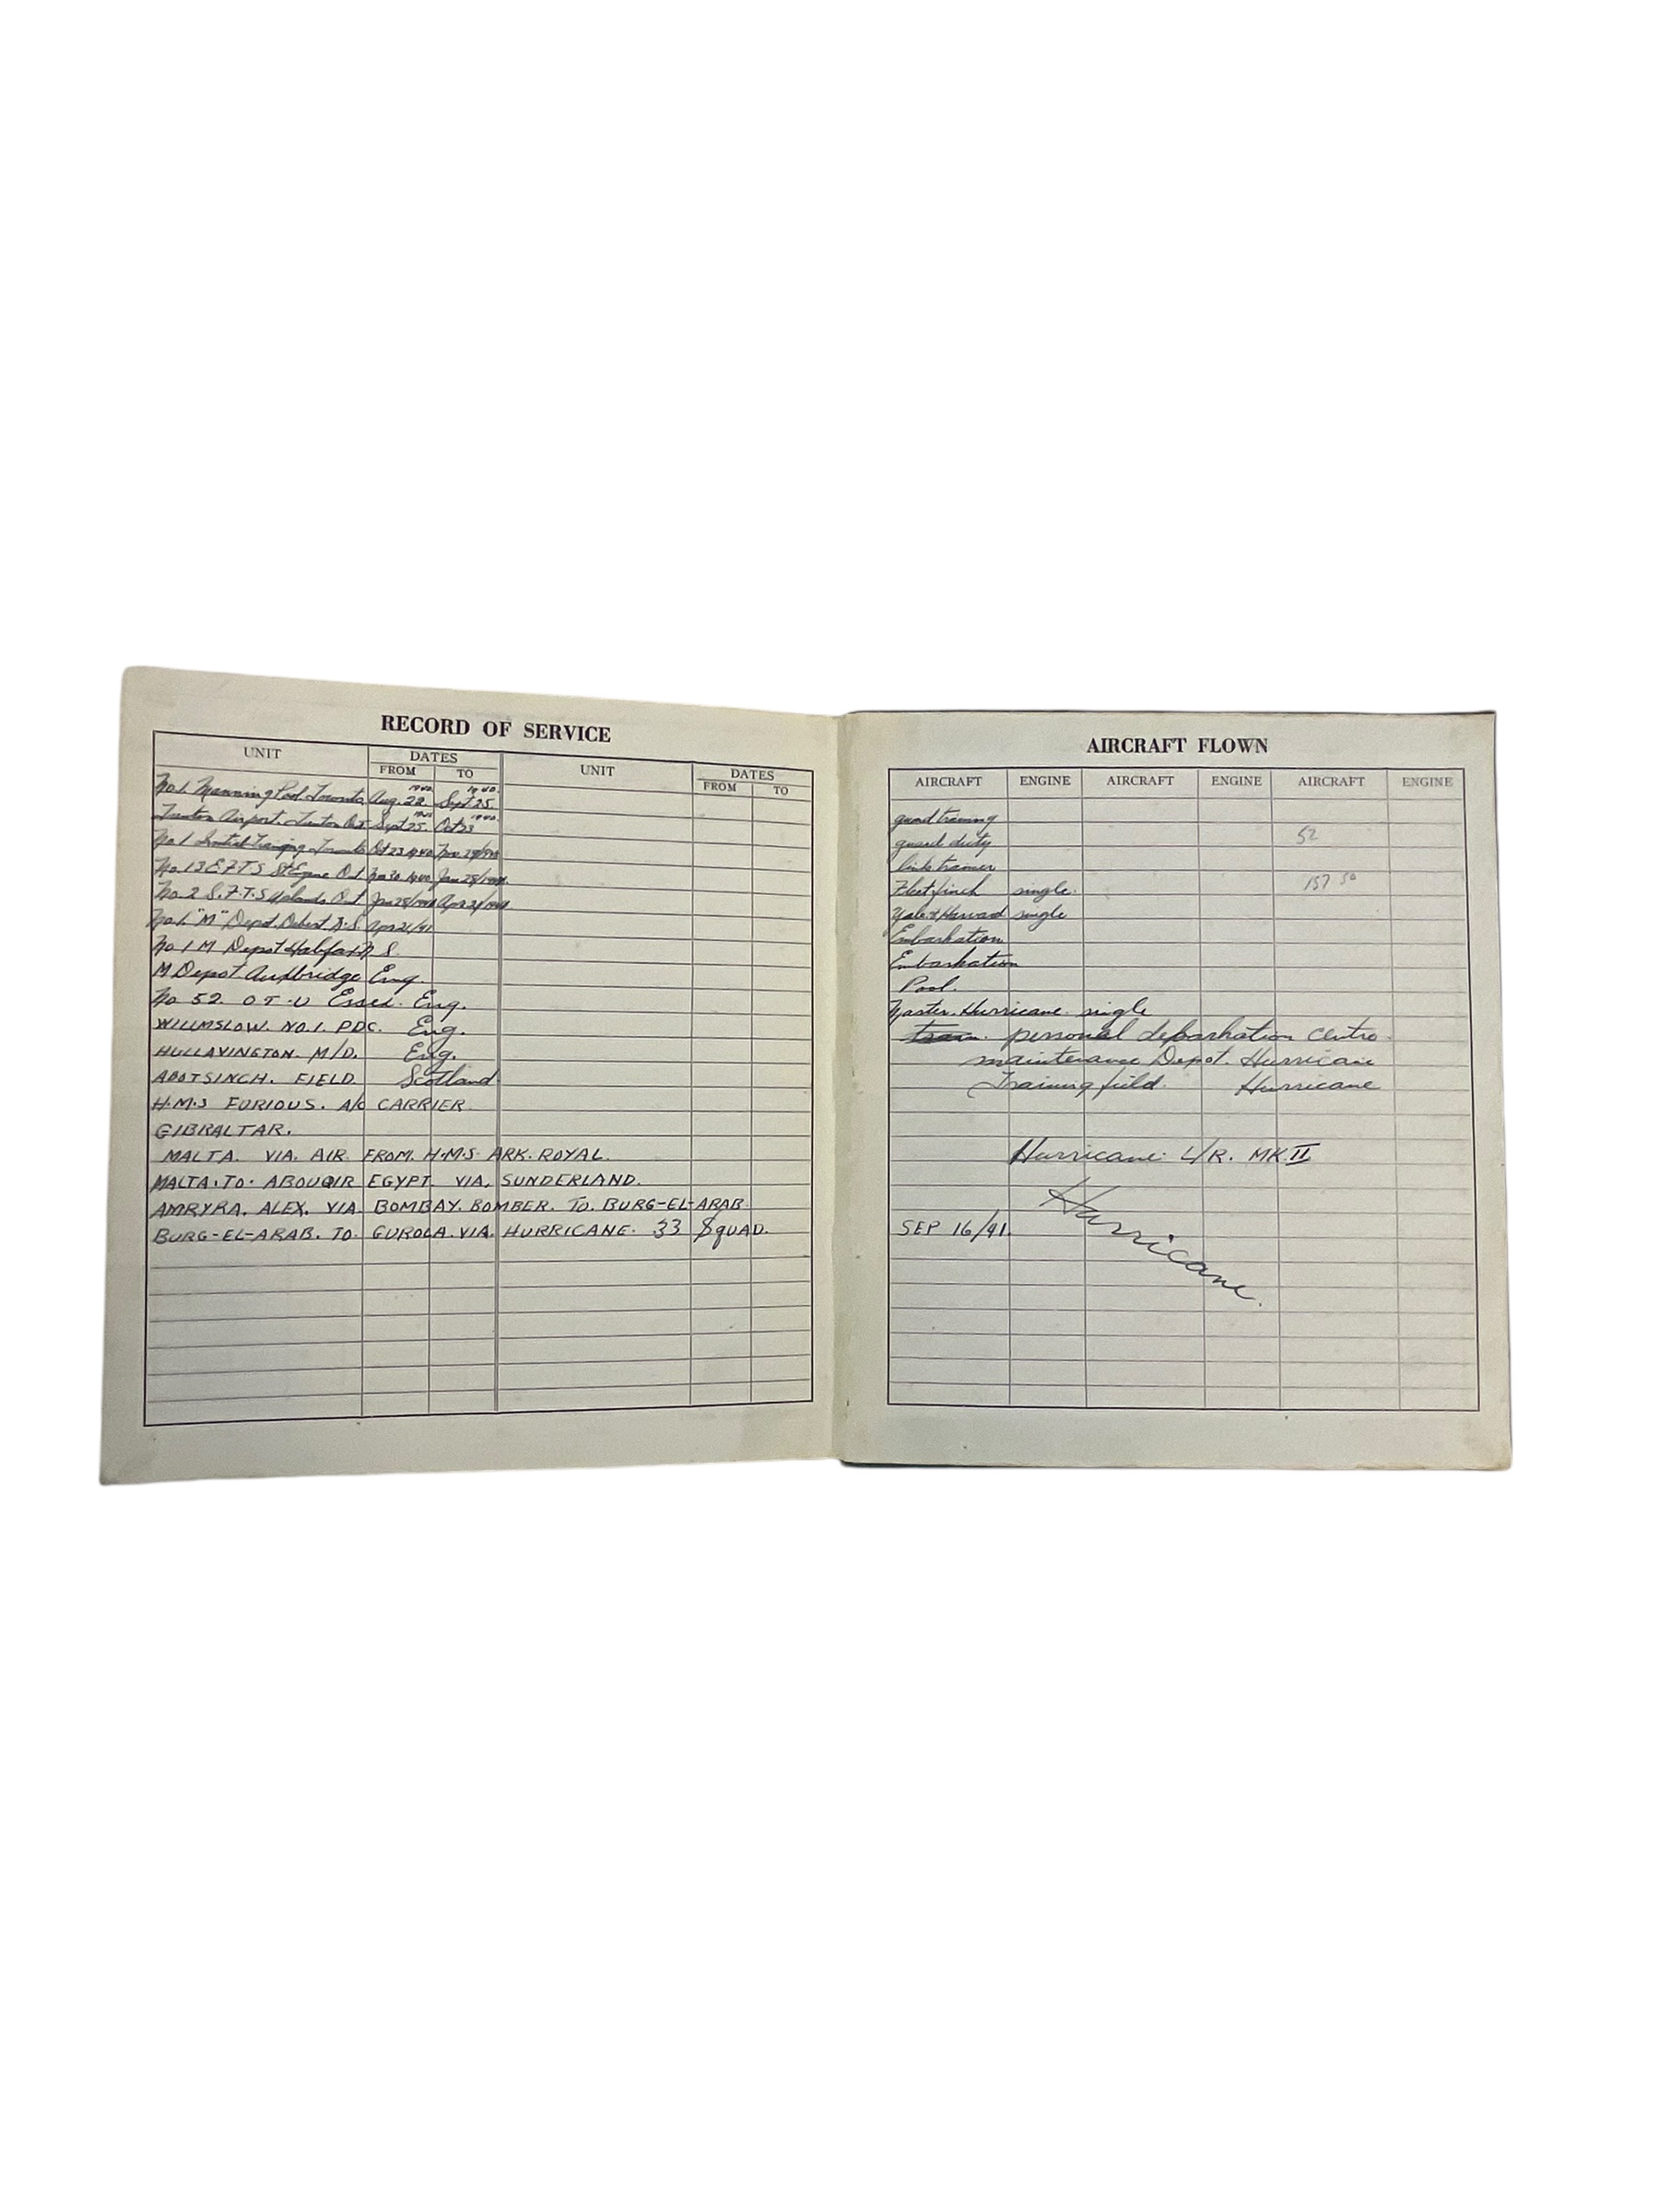 RECORD OF SERVICE
UNIT DATES UNIT DATES
FROM TO FROM TO
No.1. Manning Pool Toronto Aug. 22 1940 Sept 25. 1940.
Trenton Airport. Trenton Ont Sept 25. 1940 Oct 23 1940.
No 1 Initial Training Toronto Oct 23 1940
No. 13 E.F.T.S St Eugene Ont 1940 Jan 28/1941.
No. 2 S.F.T.S Uplands Ont Jan 28/1941 Apr 21/1941.
No. 1. "M" Depot. Debert N.S. Apr 21/41
No 1 M Depot Halifax N S.
M Depot Eng.
No 52. O T. U Essex. Eng.
WILLMSLOW. NO. 1. PDC. Eng.
HULLAVINGTON. M/D. Eng.
ABOTSINCH. FIELD. Scotland
H.M.S FURIOUS. A/C CARRIER.
GIBRALTAR.
MALTA. VIA. AIR. FROM. H.M.S. ARK. ROYAL.
MALTA. TO. ABOUQIR EGYPT. VIA. SUNDERLAND.
AMRYRA. ALEX. VIA. BOMBAY. BOMBER. TO. BURG-EL-ARAB.
BURG-EL-ARAB. TO. GUROLA. VIA. HURRICANE. 33 SQUAD.
AIRCRAFT FLOWN
AIRCRAFT ENGINE AIRCRAFT ENGINE AIRCRAFT ENGINE
guard training
guard duty 52
link trainer
Fleet finch single. 157 50
Yale & Harvard single
Embarkation
Embarkation
Pool.
Master. Hurricane. single
personal debarkation Centre.
maintenance Depot. Hurricane
Training field. Hurricane
Hurricane L/R. MK II
SEP 16/41. Hurricane.